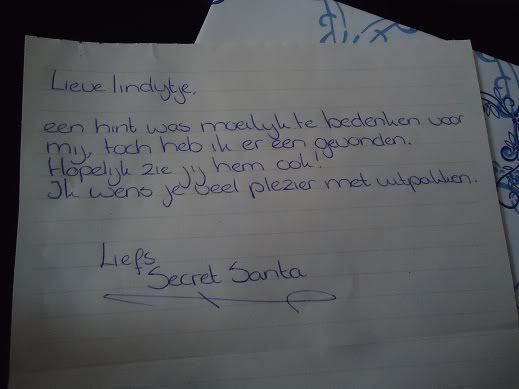 Lieve lindytje,
een hint was moeilijk te bedenken voor
mij, toch heb ik er een gevonden.
Hopelijk zie jij hem ook!
Ik wens je veel plezier met uitpakken.
Liefs
Secret Santa